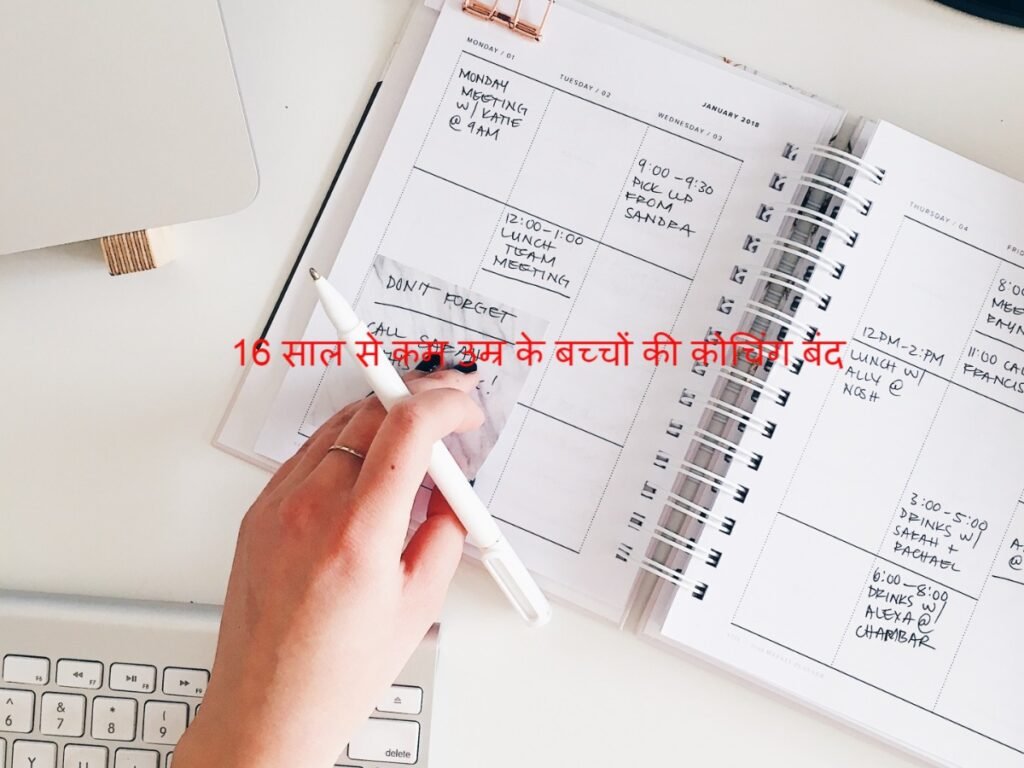 JANUARY 2018
MONDAY / 01
MONDAY
MEETING
W/ KATIE
@ 9AM
TUESDAY / 02
12:00-1:00
LUNCH
TEAM
MEETING
WEDNESDAY / 03
9:00-9:30
PICK UP
FROM
SANDRA
DON'T FORGET
CALL SARAH
16 साल से कम उम्र के बच्चों की कोचिंग बंद
THURSDAY / 04
12PM-2:PM
LUNCH W/
ALLY @
NOSH
3:00-5:00
DRINKS W/
SARAH +
RACHAEL
6:00-8:00
DRINKS W/
ALEXA @
CHAMBAR
8:0
11:00
F6
F7
F8
F9
^
6
&
7
*
8
(
9
Y
U
I
delete